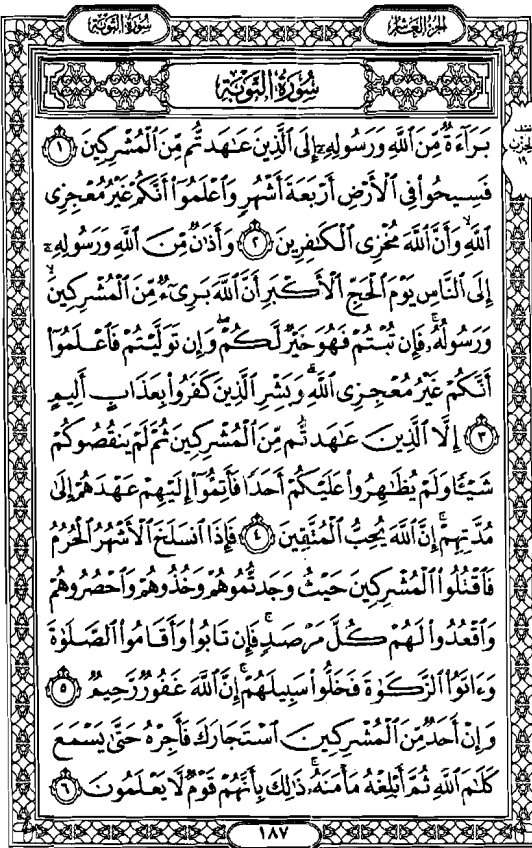 سُورَةُ التَّوْبَةِ
الجزء العاشر
سُورَةُ التَّوْبَةِ
بَرَآءَةٌ مِّنَ ٱللَّهِ وَرَسُولِهِۦٓ إِلَى ٱلَّذِينَ عَـٰهَدتُّم مِّنَ ٱلْمُشْرِكِينَ ١
فَسِيحُوا۟ فِى ٱلْأَرْضِ أَرْبَعَةَ أَشْهُرٍ وَٱعْلَمُوٓا۟ أَنَّكُمْ غَيْرُ مُعْجِزِى
ٱللَّهِ ۙ وَأَنَّ ٱللَّهَ مُخْزِى ٱلْكَـٰفِرِينَ ٢ وَأَذَٰنٌ مِّنَ ٱللَّهِ وَرَسُولِهِۦٓ
إِلَى ٱلنَّاسِ يَوْمَ ٱلْحَجِّ ٱلْأَكْبَرِ أَنَّ ٱللَّهَ بَرِىٓءٌ مِّنَ ٱلْمُشْرِكِينَ ۙ
وَرَسُولُهُۥ ۚ فَإِن تُبْتُمْ فَهُوَ خَيْرٌ لَّكُمْ ۖ وَإِن تَوَلَّيْتُمْ فَٱعْلَمُوٓا۟
أَنَّكُمْ غَيْرُ مُعْجِزِى ٱللَّهِ ۗ وَبَشِّرِ ٱلَّذِينَ كَفَرُوا۟ بِعَذَابٍ أَلِيمٍ
٣ إِلَّا ٱلَّذِينَ عَـٰهَدتُّم مِّنَ ٱلْمُشْرِكِينَ ثُمَّ لَمْ يَنقُصُوكُمْ
شَيْـًٔا وَلَمْ يُظَـٰهِرُوا۟ عَلَيْكُمْ أَحَدًا فَأَتِمُّوٓا۟ إِلَيْهِمْ عَهْدَهُمْ إِلَىٰ
مُدَّتِهِمْ ۚ إِنَّ ٱللَّهَ يُحِبُّ ٱلْمُتَّقِينَ ٤ فَإِذَا ٱنسَلَخَ ٱلْأَشْهُرُ ٱلْحُرُمُ
فَٱقْتُلُوا۟ ٱلْمُشْرِكِينَ حَيْثُ وَجَدتُّمُوهُمْ وَخُذُوهُمْ وَٱحْصُرُوهُمْ
وَٱقْعُدُوا۟ لَهُمْ كُلَّ مَرْصَدٍ ۚ فَإِن تَابُوا۟ وَأَقَامُوا۟ ٱلصَّلَوٰةَ
وَءَاتَوُا۟ ٱلزَّكَوٰةَ فَخَلُّوا۟ سَبِيلَهُمْ ۚ إِنَّ ٱللَّهَ غَفُورٌ رَّحِيمٌ ٥
وَإِنْ أَحَدٌ مِّنَ ٱلْمُشْرِكِينَ ٱسْتَجَارَكَ فَأَجِرْهُ حَتَّىٰ يَسْمَعَ
كَلَـٰمَ ٱللَّهِ ثُمَّ أَبْلِغْهُ مَأْمَنَهُۥ ۚ ذَٰلِكَ بِأَنَّهُمْ قَوْمٌ لَّا يَعْلَمُونَ ٦
١٨٧